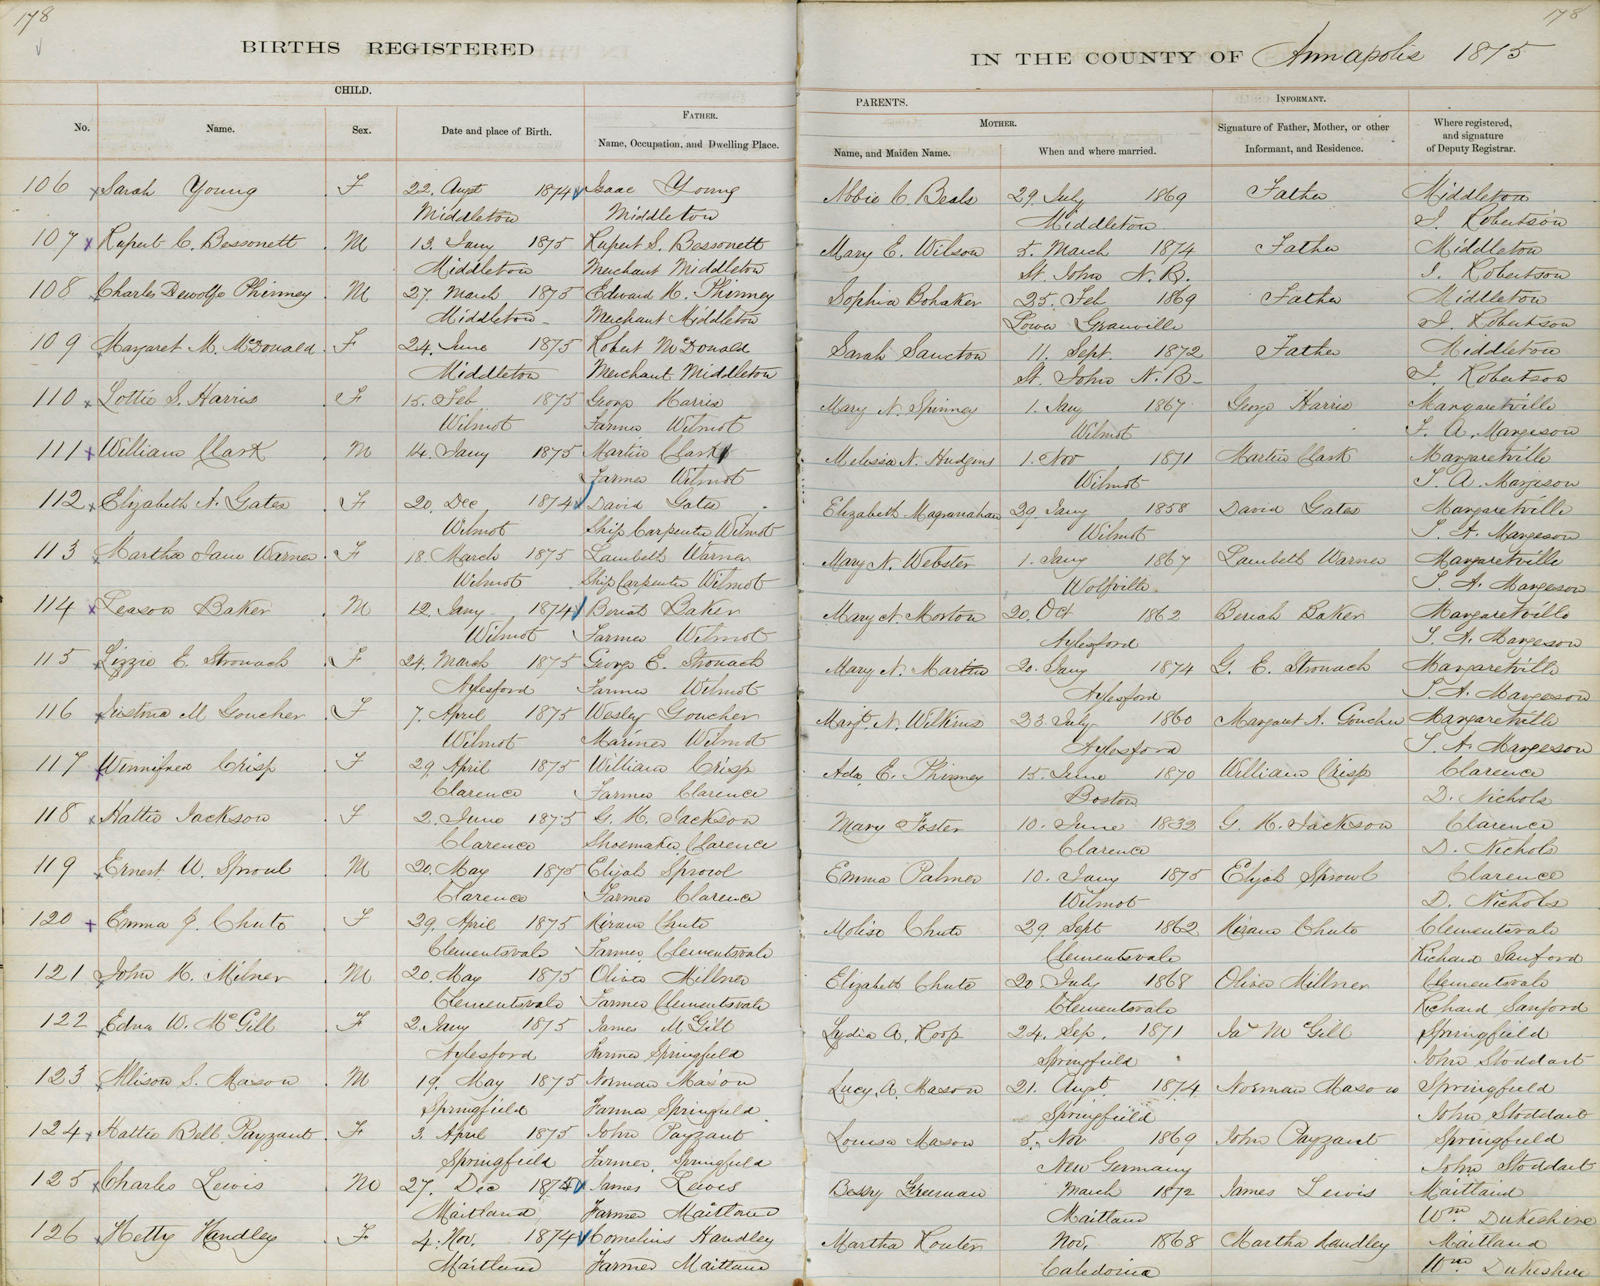 178
178
BIRTHS REGISTERED
IN THE COUNTY OF Annapolis 1875
CHILD.
PARENTS.
INFORMANT.
No.
Name.
Sex.
Date and place of Birth.
FATHER.
Name, Occupation, and Dwelling Place.
MOTHER.
Name, and Maiden Name.
When and where married.
Signature of Father, Mother, or other Informant, and Residence.
Where registered, and signature of Deputy Registrar.
106 Sarah Young F 22. Augst 1874 Isaac Young Abbie C. Beals 29. July 1869 Father Middleton
Middleton Middleton Middleton J. Robertson
107 Rupert C. Bessonett M 13. Jany 1875 Rupert S. Bessonett Mary E. Wilson 5. March 1874 Father Middleton
Middleton Merchant Middleton St. John N.B. J. Robertson
108 Charles Dewolfe Phinney M 27. March 1875 Edward H. Phinney Sophia Bohaker 25. Feb 1869 Father Middleton
Middleton Merchant Middleton Lower Granville J. Robertson
109 Margaret M. McDonald F 24. June 1875 Robert McDonald Sarah Sancton 11. Sept. 1872 Father Middleton
Middleton Merchant Middleton St. John N.B. J. Robertson
110 Lottie S. Harris F 15. Feb 1875 George Harris Mary N. Spinney 1. Jany 1867 George Harris Margaretville
Wilmot Farmer Wilmot Wilmot T. A. Margeson
111 William Clark M 14. Jany 1875 Martin Clark Melissa N. Hudgins 1. Nov 1871 Martin Clark Margaretville
Farmer Wilmot Wilmot T. A. Margeson
112 Elizabeth A. Gates F 20. Dec 1874 David Gates Elizabeth Magranahan 29. Jany 1858 David Gates Margaretville
Wilmot Ship Carpenter Wilmot Wilmot T. A. Margeson
113 Martha Jane Warner F 18. March 1875 Lambeth Warner Mary N. Webster 1. Jany 1867 Lambeth Warner Margaretville
Wilmot Ship Carpenter Wilmot Wolfville T. A. Margeson
114 Leason Baker M 12. Jany 1874 Beriah Baker Mary N. Morton 20. Oct 1862 Beriah Baker Margaretville
Wilmot Farmer Wilmot Aylesford T. A. Margeson
115 Lizzie E. Stronach F 24. March 1875 George E. Stronach Mary N. Martin 20. Jany 1874 G. E. Stronach Margaretville
Aylesford Farmer Wilmot Aylesford T. A. Margeson
116 M Goucher F 7. April 1875 Wesley Goucher Margt. N. Wilkins 23 July 1860 Margaret A. Goucher Margaretville
Wilmot Mariner Wilmot Aylesford T. A. Margeson
117 Winnifred Crisp F 29 April 1875 William Crisp Ada E. Phinney 15. June 1870 William Crisp Clarence
Clarence Farmer Clarence Boston D. Nichols
118 Hattie Jackson F 2. June 1875 G. H. Jackson Mary Foster 10. June 1833 G. H. Jackson Clarence
Clarence Shoemaker Clarence Clarence D. Nichols
119 Ernest W. Sproul M 20. May 1875 Elijah Sprowl Emma Palmer 10. Jany 1875 Elijah Sprowl Clarence
Clarence Farmer Clarence Wilmot D. Nichols
120 Emma J. Chute F 29. April 1875 Hiram Chute Melisa Chute 29. Sept 1862 Hiram Chute Clementsvale
Clementsvale Farmer Clementsvale Clementsvale Richard Sanford
121 John H. Milner M 20. May 1875 Oliver Millner Elizabeth Chute 20 July 1868 Oliver Millner Clementsvale
Clementsvale Farmer Clementsvale Clementsvale Richard Sanford
122 Edna W. McGill F 2. Jany 1875 James McGill Lydia A. Roop 24. Sep. 1871 Jas McGill Springfield
Aylesford Farmer Springfield Springfield John Stoddart
123 Allison S. Mason M 19. May 1875 Norman Mason Lucy A. Mason 21. Augt. 1874 Norman Mason Springfield
Springfield Farmer Springfield Springfield John Stoddart
124 Hattie Bell Payzant F 3. April 1875 John Payzant Louisa Mason 5. Nov 1869 John Payzant Springfield
Springfield Farmer Springfield New Germany John Stoddart
125 Charles Lewis M 27. Dec 1874 James Lewis Bessy Freeman March 1872 James Lewis Maitland
Maitland Farmer Maitland Maitland Wm Dukeshire
126 Hetty Handley F 4. Nov. 1874 Cornelius Handley Martha Hunter Nov. 1868 Martha Handley Maitland
Maitland Farmer Maitland Caledonia Wm Dukeshire